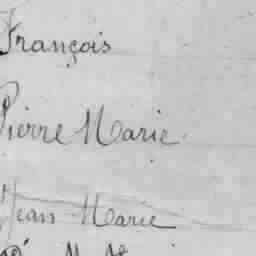 François
Pierre Marie
Jean Marie